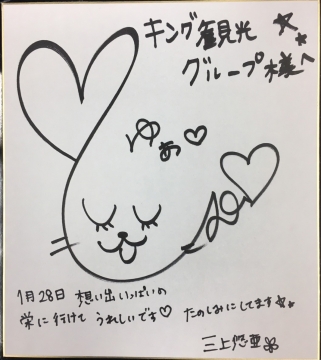 キング観光
グループ様へ
ゆあ♡
1月28日 想い出いっぱいの
栄に行けて うれしいです♡ たのしみにしてます☆☆
三上悠亜